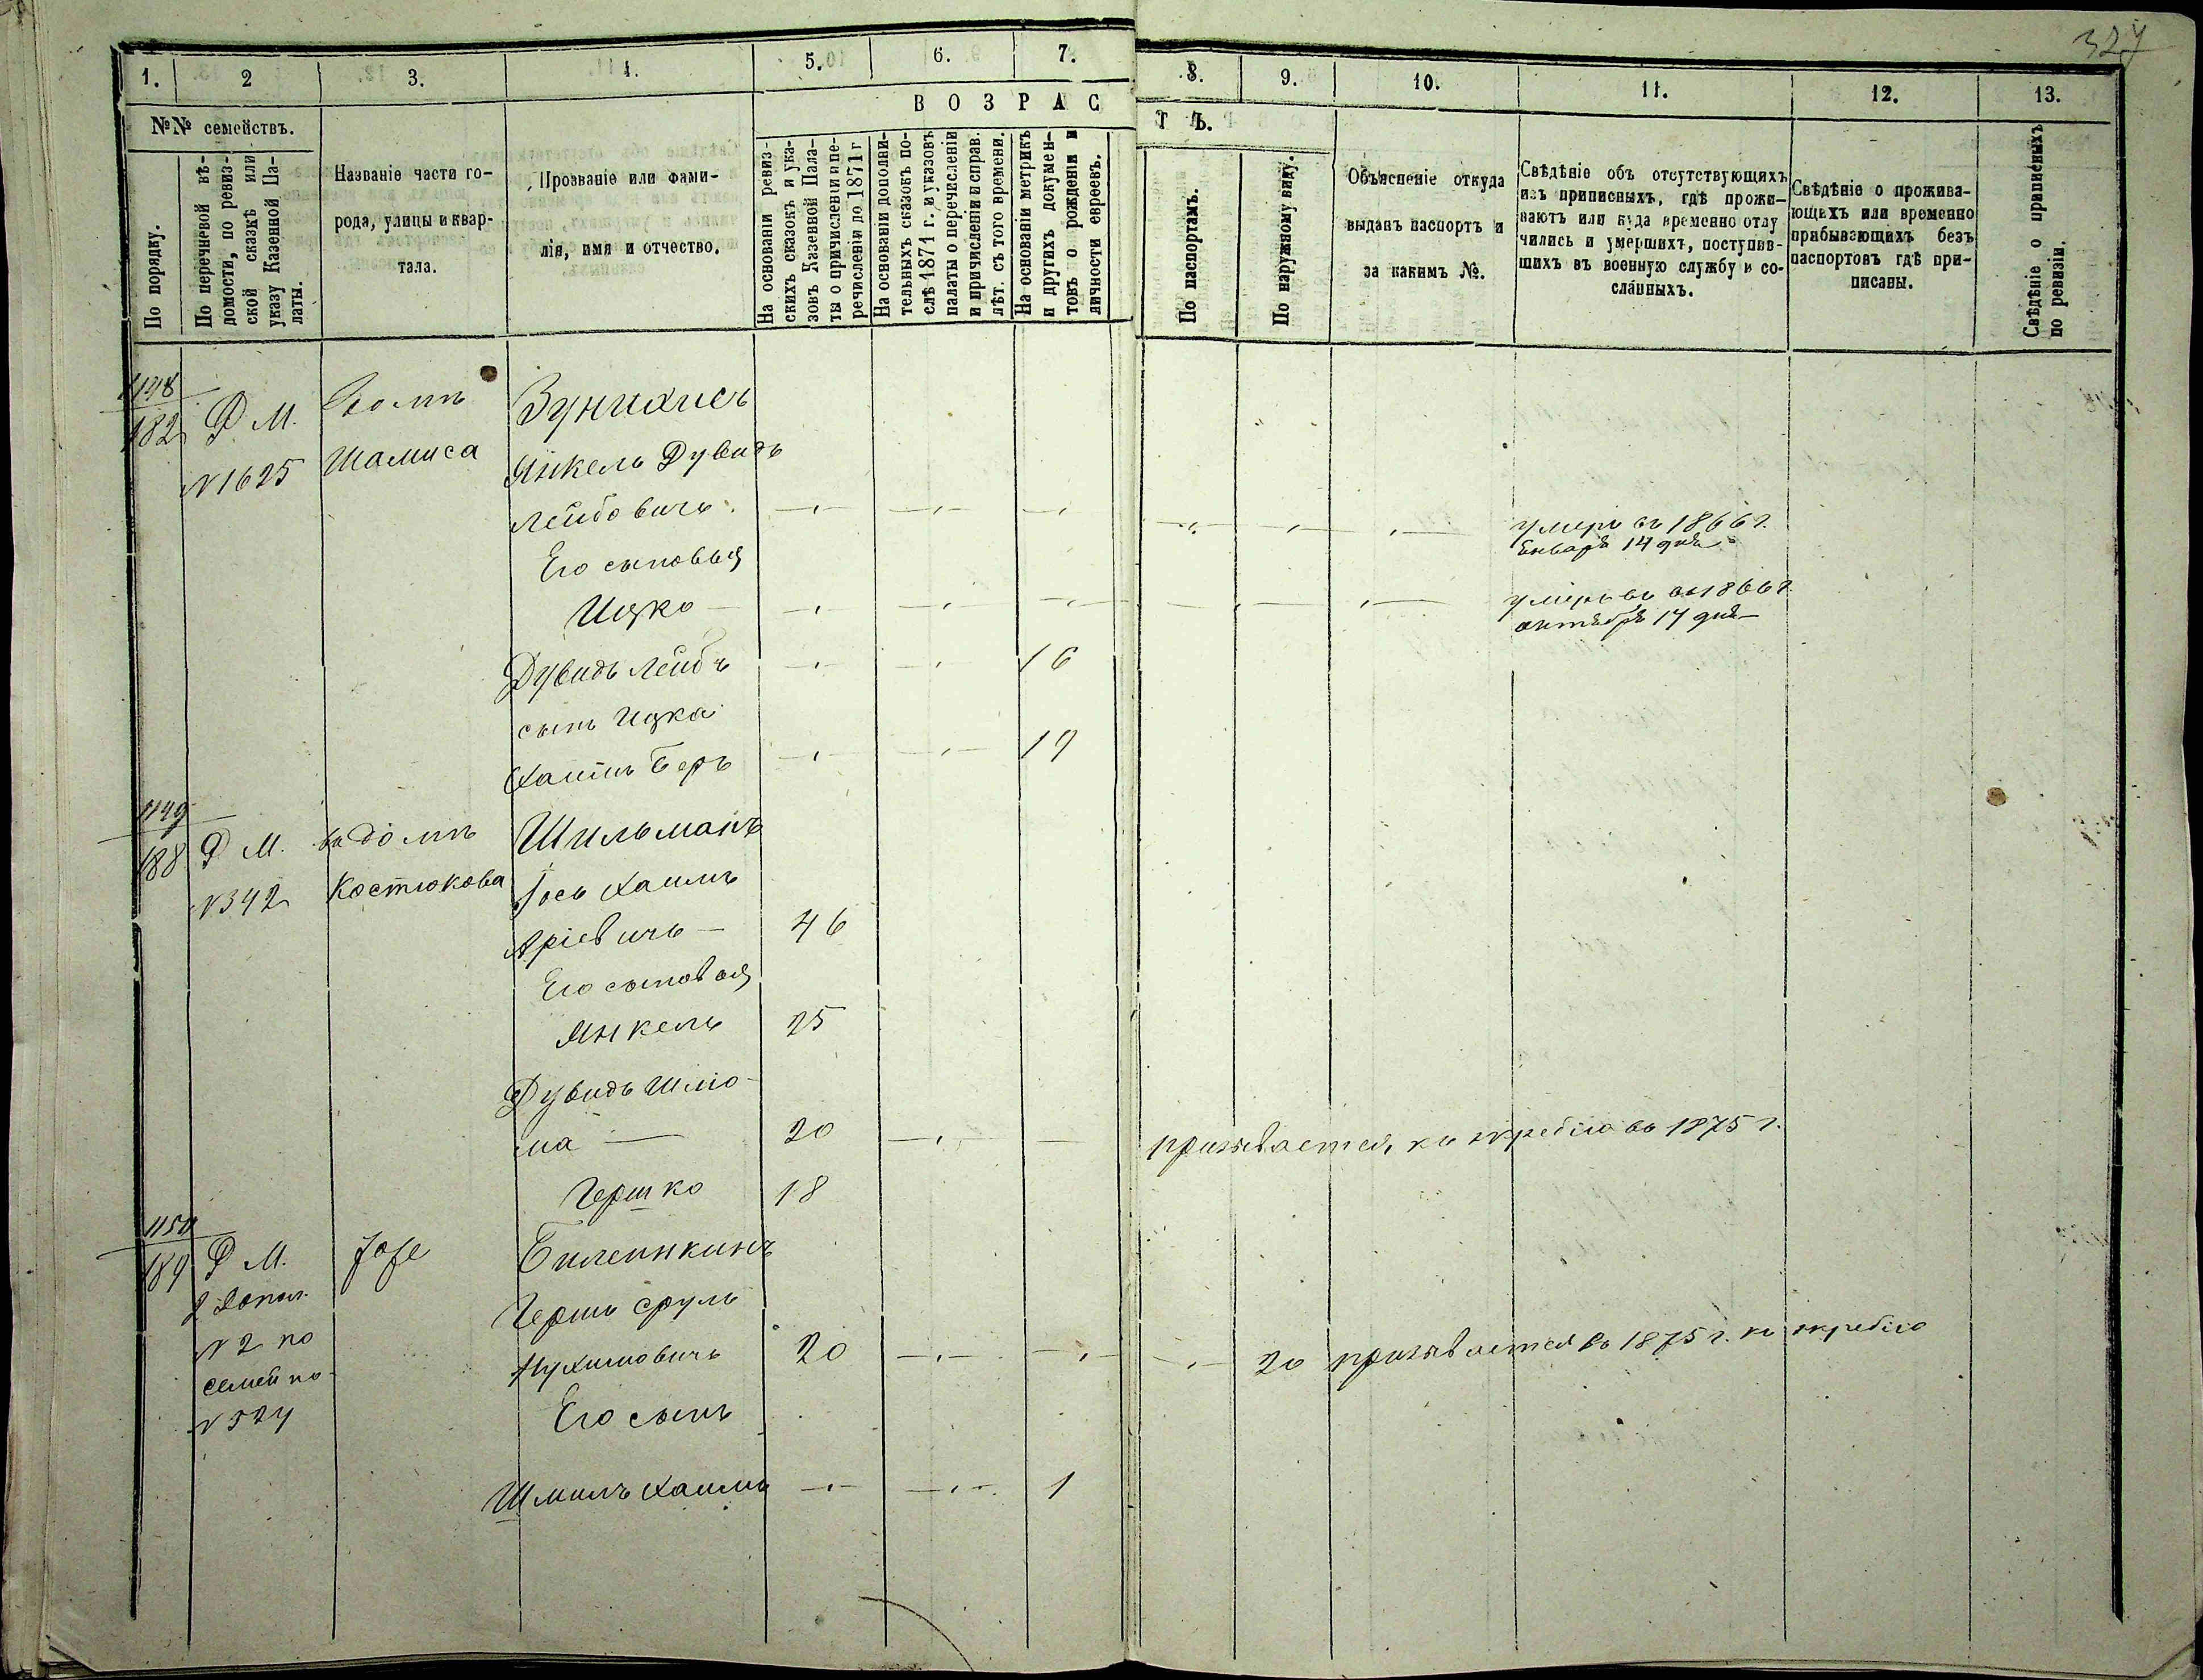 327
1. 2 3. 4. 5. 6. 7. 8. 9. 10. 11. 12. 13.
№№ семействъ.
В О З Р А С Т Ъ.
По порядку.
По перечневой вѣ-
домости, по ревиз-
ской сказкѣ или
указу Казенной Па-
латы.
Названіе части го-
рода, улицы и квар-
тала.
Прозваніе или фами-
лія, имя и отчество.
На основаніи ревиз-
скихъ сказокъ и ука-
зовъ Казенной Пала-
ты о причисленіи и пе-
речисленіи до 1871 г
На основаніи дополни-
тельныхъ сказокъ по-
слѣ 1871 г. и указовъ
палаты о перечисленіи
и причисленіи и справ.
лѣт. съ того времени.
На основаніи метрикъ
и другихъ докумен-
товъ о рожденіи и
личности евреевъ.
По паспортамъ.
По наружному виду.
Объясненіе откуда
выданъ паспортъ и
за какимъ №.
Свѣдѣніе объ отсутствующихъ
изъ приписныхъ, гдѣ прожи-
ваютъ или куда временно отлу
чились и умершихъ, поступив-
шихъ въ военную службу и со-
сланныхъ.
Свѣдѣніе о прожива-
ющихъ или временно
прибывающихъ безъ
паспортовъ гдѣ при-
писаны.
Свѣдѣніе о приписныхъ
по ревизіи.
1148
182 Р М. Домъ Зунихисъ
N 1625 Шамиса Янкель Дувидъ
Лейбовичъ — — — — — — умеръ въ 1866 г.
Января 14 дня
Его сыновья
Ицко — — — — — — умеръ въ 1866 г
октября 17 дня
Дувидъ Лейбъ — — 16
сынъ Ицка
Хаимъ Беръ — — 19
1149
188 Р М. въ домъ Шильманъ
N 342 Костюкова Іось Хаимъ
Аріевичъ — 46
Его сыновья
Янкель 25
Дувидъ Шлио-
ма — 20 — — призывается къ жребію въ 1875 г.
Гершко 18
1150
189 Р М. Јоfе Билеинкинъ
2 Допол. Гершъ Сруль
N 2 по Нухимовичъ 20 — — — 20 призывается въ 1875 г. къ жребію
семейно-
N 524 Его сынъ
Шмилъ Хаимъ — — 1